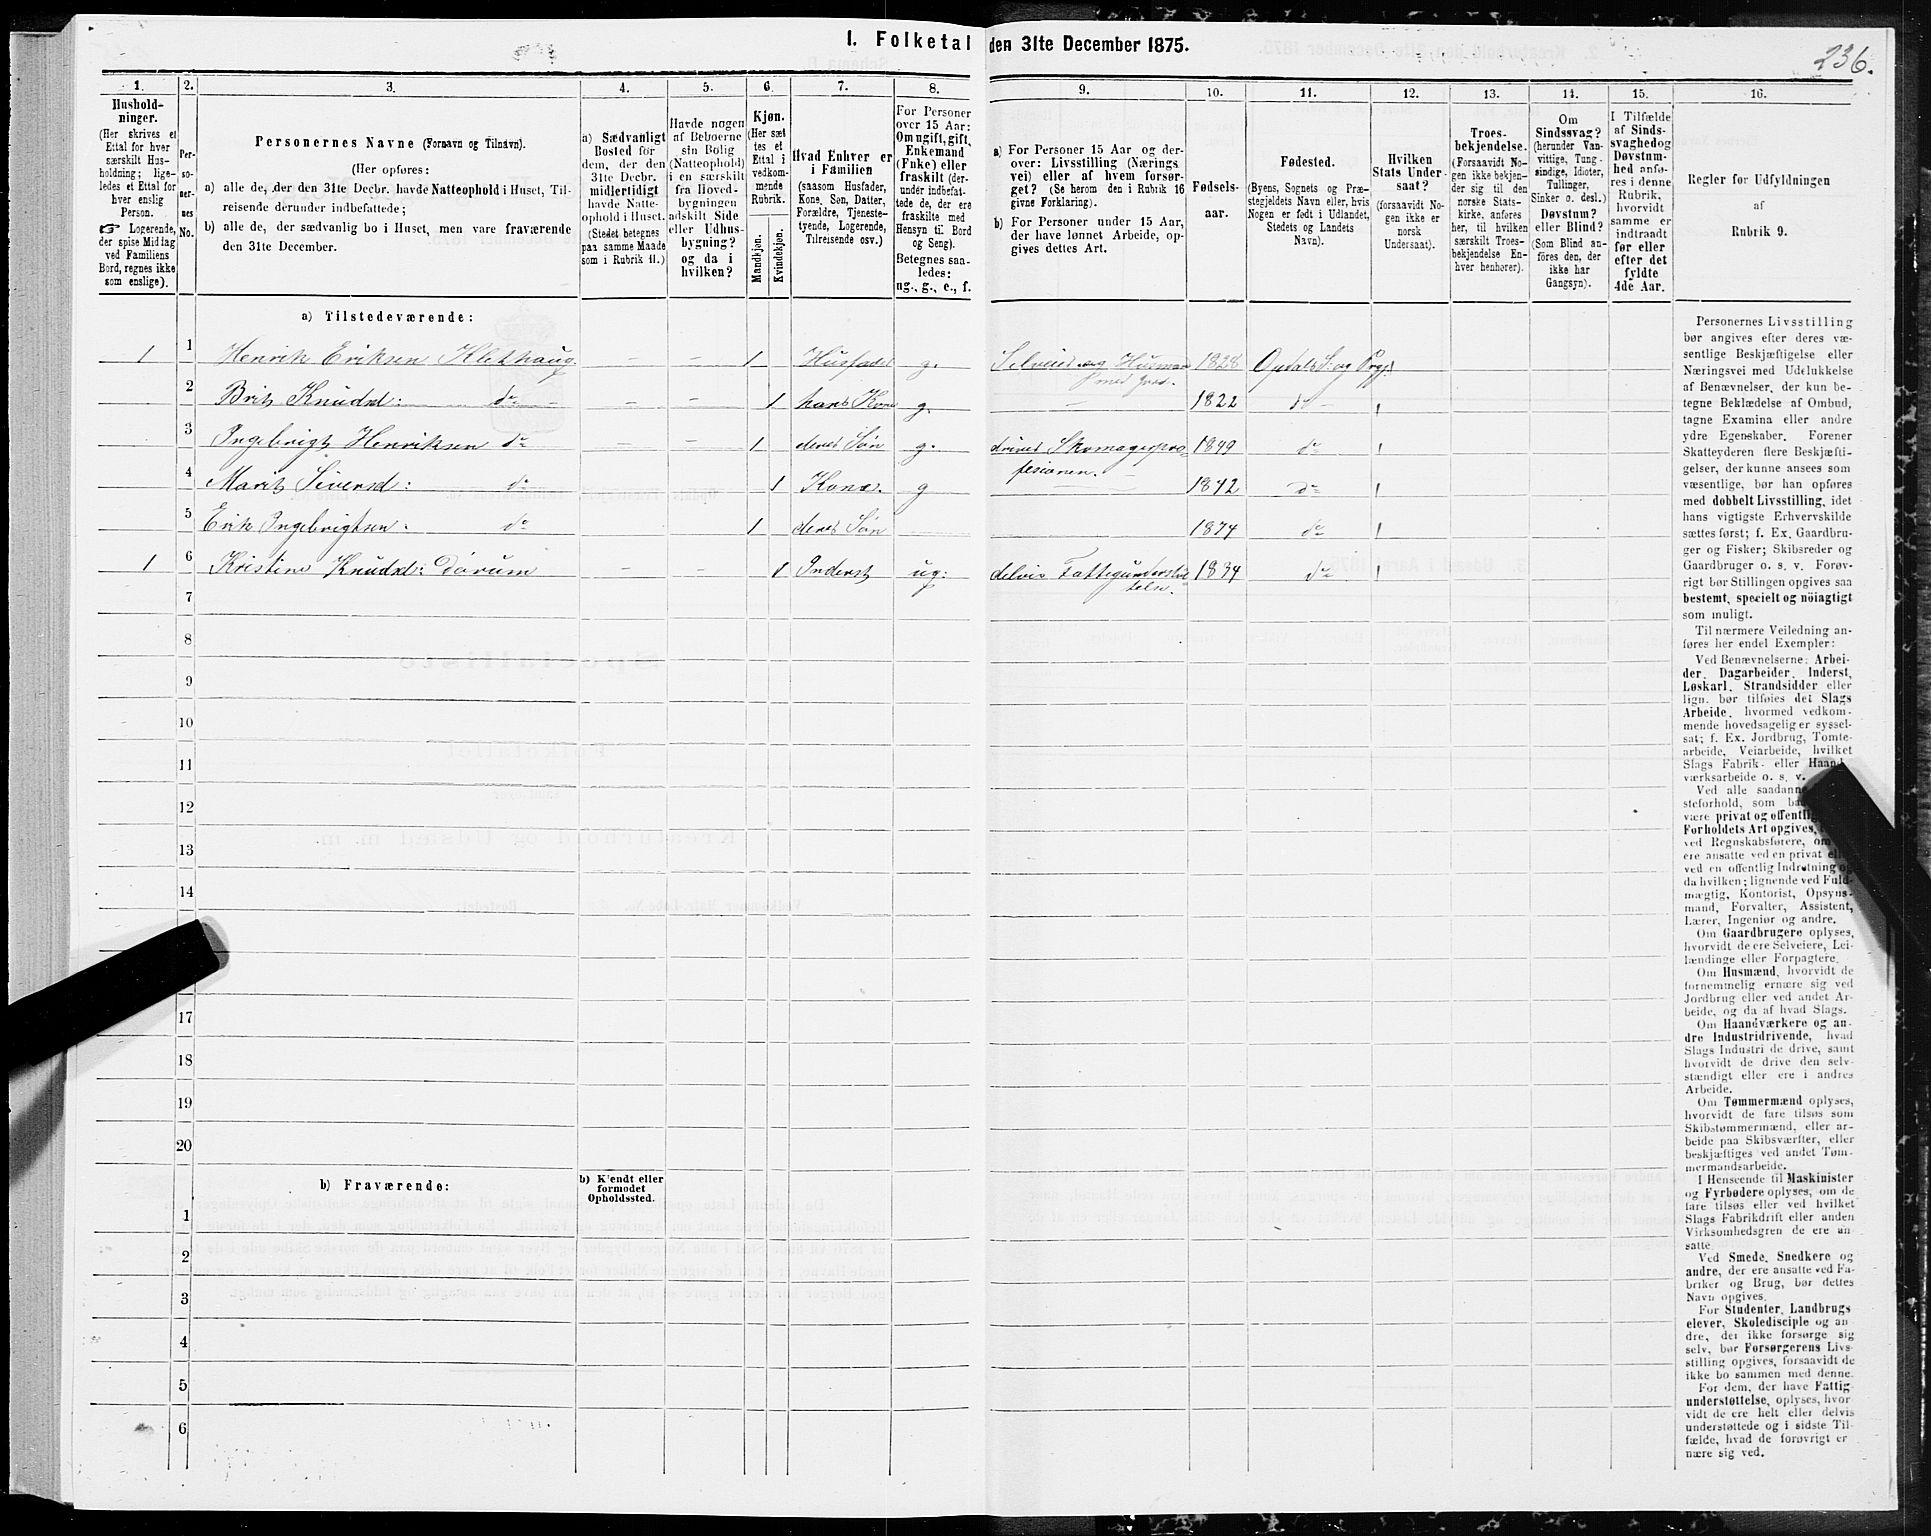 I. Folketal den 31te December 1875.
236.
1.
Hushold-
ninger.
(Her skrives et
Ettal for hver
særskilt Hus-
holdning; lige-
ledes et Ettal for
hver enslig
Person.
☞ Logerende,
der spise Middag
ved Familiens
Bord, regnes ikke
som enslige).
2.
Per-
so-
ner-
nes
No.
3.
Personernes Navne (Fornavn og Tilnavn).
(Her opføres:
a) alle de, der den 31te Decbr. havde Natteophold i Huset, Til-
reisende derunder indbefattede;
b) alle de, der sædvanlig bo i Huset, men vare fraværende
den 31te December.
4.
a) Sædvanligt
Bosted for
dem, der den
31te Decbr.
midlertidigt
havde Natte-
ophold i Huset.
(Stedet betegnes
paa samme Maade
som i Rubrik 11.)
5.
Havde nogen
af Beboerne
sin Bolig
(Natteophold)
i en særskilt
fra Hoved-
bygningen
adskilt Side
eller Udhus-
bygning?
og da i
hvilken?
6.
Kjøn.
(Her sæt-
tes et
Ettal i
vedkom-
mende
Rubrik.
Mandkjøn.
Kvindekjøn.
7.
Hvad Enhver er
i Familien
(saasom Husfader,
Kone, Søn, Datter,
Forældre, Tjeneste-
tyende, Logerende,
Tilreisende osv.)
8.
For Personer
over 15 Aar:
Om ugift, gift,
Enkemand
(Enke) eller
fraskilt (der-
under indbefat-
tede de, der ere
fraskilte med
Hensyn til Bord
og Seng).
Betegnes saa-
ledes:
ug., g., e., f.
9.
a) For Personer 15 Aar og der-
over: Livsstilling (Nærings
vei) eller af hvem forsør-
get? (Se herom den i Rubrik 16
givne Forklaring).
b) For Personer under 15 Aar,
der have lønnet Arbeide, op-
gives dettes Art.
10.
Fødsels-
aar.
11.
Fødested.
(Byens, Sognets og Præ-
stegjeldets Navn eller, hvis
Nogen er født i Udlandet,
Stedets og Landets
Navn).
12.
Hvilken
Stats Under-
saat?
(forsaavidt No-
gen ikke er
norsk
Undersaat).
13.
Troes-
bekjendelse.
(Forsaavidt No-
gen ikke bekjen-
der sig til den
norske Stats-
kirke, anføres
her, til hvilken
særskilt Troes-
bekjendelse En-
hver henhører).
14.
Om
Sindssvag?
(herunder Van-
vittige, Tung-
sindige, Idioter,
Tullinger,
Sinker o. desl.)
Døvstum?
eller Blind?
(Som Blind an-
føres den, der
ikke har
Gangsyn).
15.
I Tilfælde
af Sinds-
svaghed og
Døvstum-
hed anfø-
res i denne
Rubrik,
hvorvidt
samme er
indtraadt
før eller
efter det
fyldte
4de Aar.
16.
Regler for Udfyldningen
af
Rubrik 9.
a) Tilstedeværende:
1 1 Henrik Eriksen Kletthaug – – 1 Husfader g. Selveier og Husmand med Jord. 1828 Opdals S. og Prgj.
2 Brit Knudsd: do – – 1 hans Kone g. – 1822 do –
3 Ingebrigt Henriksen do – – 1 deres Søn g. driver Skomagerpro-
fesionen. 1849 do
4 Marit Siversd: do 1 Kone. g – – 1842 do
5 Erik Ingebrigtsen do 1 deres Søn 1874 do
1 6 Kristine Knudsd: Dørum – – 1 Inderst ug: delvis Fattigunderstøt-
telse. 1834 do
7
8
9
10
11
12
13
14
17
18
19
20
b) Fraværende:
b) Kjendt eller
formodet
Opholdssted.
1
2
3
4
5
6
Personernes Livsstilling
bør angives efter deres væ-
sentlige Beskjæftigelse eller
Næringsvei med Udelukkelse
af Benævnelser, der kun be-
tegne Beklædelse af Ombud,
tagne Examina eller andre
ydre Egenskaber. Forener
Skatteyderen flere Beskjæfti-
gelser, der kunne ansees som
væsentlige, bør han opføres
med dobbelt Livsstilling, idet
hans vigtigste Erhvervskilde
sættes først; f. Ex. Gaardbru-
ger og Fisker; Skibsreder og
Gaardbruger o. s. v. Forøv-
rigt bør Stillingen opgives saa
bestemt, specielt og nöiagtigt
som muligt.
Til nærmere Veiledning an-
føres her endel Exempler:
Ved Benævnelserne: Arbei-
der, Dagarbeider, Inderst,
Løskarl, Strandsidder eller
lign. bør tilføies det Slags
Arbeide, hvormed vedkom-
mende hovedsagelig er syssel-
sat; f. Ex. Jordbrug, Tomte-
arbeide, Veiarbeide, hvilket
Slags Fabrik- eller Haand-
værksarbeide o. s. v.
Ved alle saadanne
steforhold, som
være privat og offentlig
Forholdets Art opgives,
ved Regnskabsførere, om
ere ansatte ved en privat
ved en offentlig Indretning og
da hvilken; lignende ved Fuld-
mægtig, Kontorist, Opsyns-
mand, Forvalter, Assistent,
Lærer, Ingeniør og andre.
Om Gaardbrugere oplyses,
hvorvidt de ere Selveiere, Lei-
lændinge eller Forpagtere.
Om Husmænd, hvorvidt de
fornemmelig ernære sig ved
Jordbrug eller ved andet Ar-
beide, og da af hvad Slags.
Om Haandværkere og an-
dre Industridrivende, hvad
Slags Industri de drive, samt
hvorvidt de drive den selv-
stændigt eller ere i andres
Arbeide.
Om Tømmermænd oplyses,
hvorvidt de fare tilsøs som
Skibstømmermænd, eller ar-
beide paa Skibsværfter, eller
beskjæftiges ved andet Tøm-
mermandsarbeide.
I Henseende til Maskinister
og Fyrbødere oplyses, om de
fare tilsøs eller ved hvilket
Slags Fabrikdrift eller anden
Virksomhedsgren de ere an-
satte.
Ved Smede, Snedkere og
andre, der ere ansatte ved Fa-
briker og Brug, bør dettes
Navn opgives.
For Studenter, Landbrugs
elever, Skoledisciple og an
dre, der ikke forsørge sig
selv, bør Forsørgerens Livs-
stilling opgives, forsaavidt de
ikke bo sammen med denne.
For dem, der have Fattig-
understøttelse, oplyses, hvor-
vidt de ere helt eller delvis
understøttede og i sidste Til-
fælde, hvad de forøvrigt er-
nære sig ved.